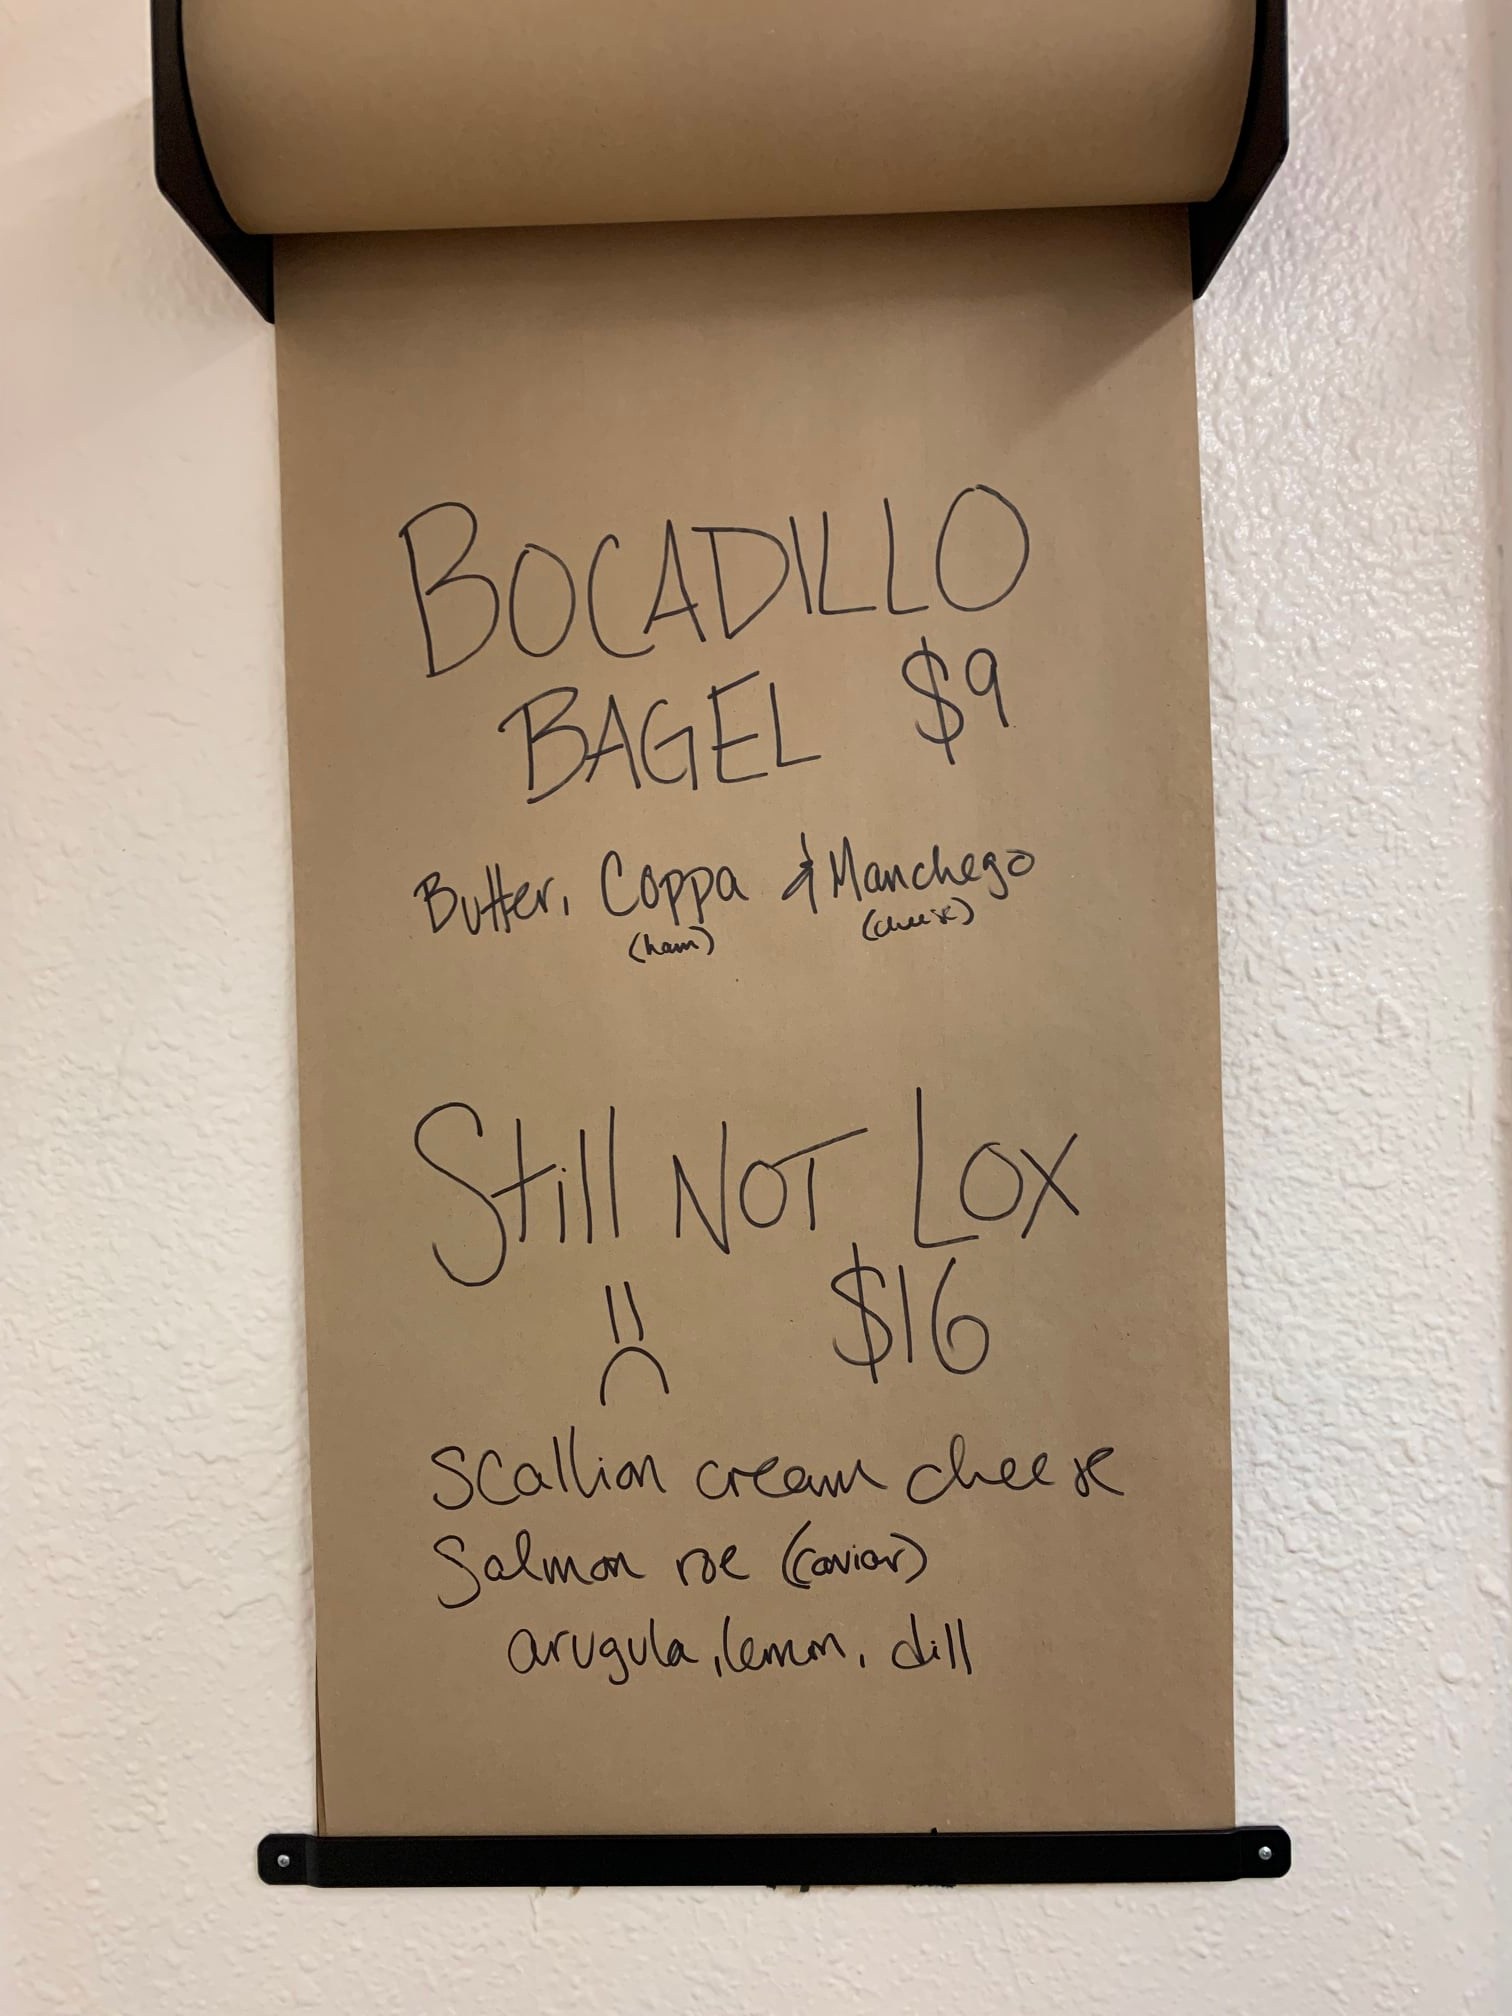 BOCADILLO
BAGEL $9
Butter, Coppa & Manchego
(ham) (cheese)
Still NOT LOX
$16
Scallion cream cheese
Salmon roe (caviar)
arugula, lemon, dill